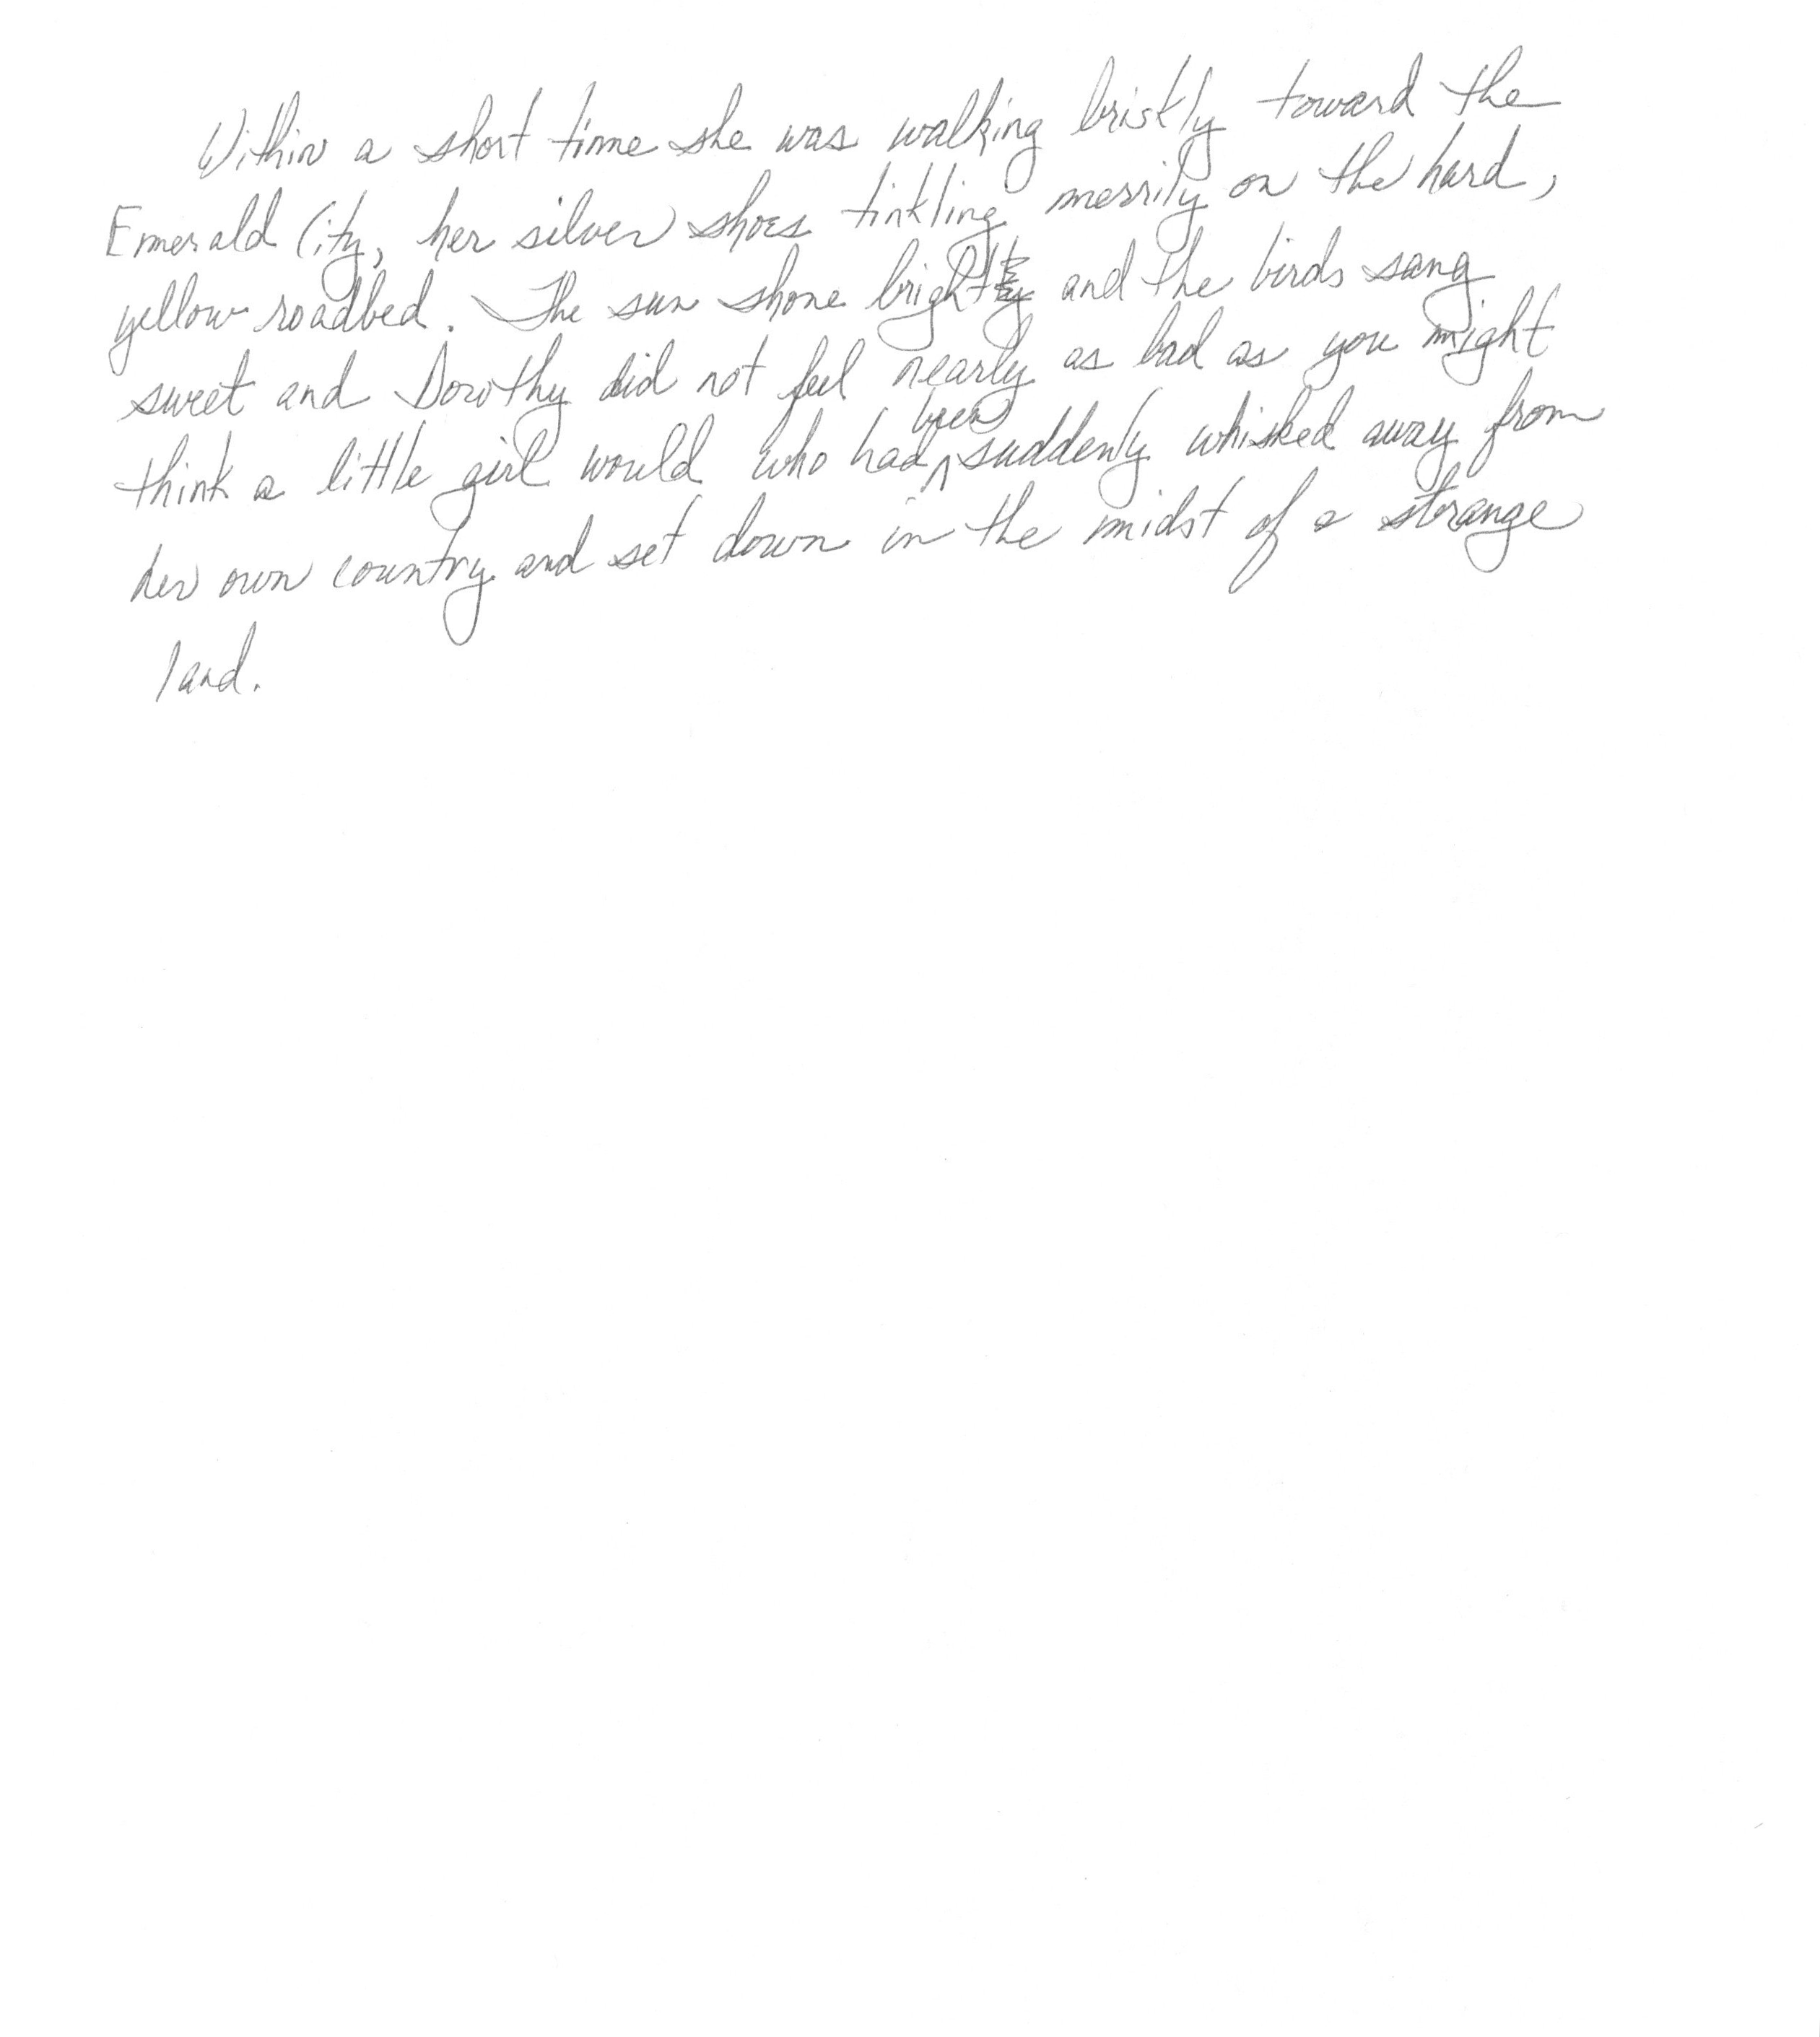 Within a short time she was walking briskly toward the
Emerald City, her silver shoes tinkling merrily on the hard,
yellow roadbed. The sun shone bright and the birds sang
sweet and Dorothy did not feel nearly as bad as you might
think a little girl would who had been suddenly whisked away from
her own country and set down in the midst of a strange
land.